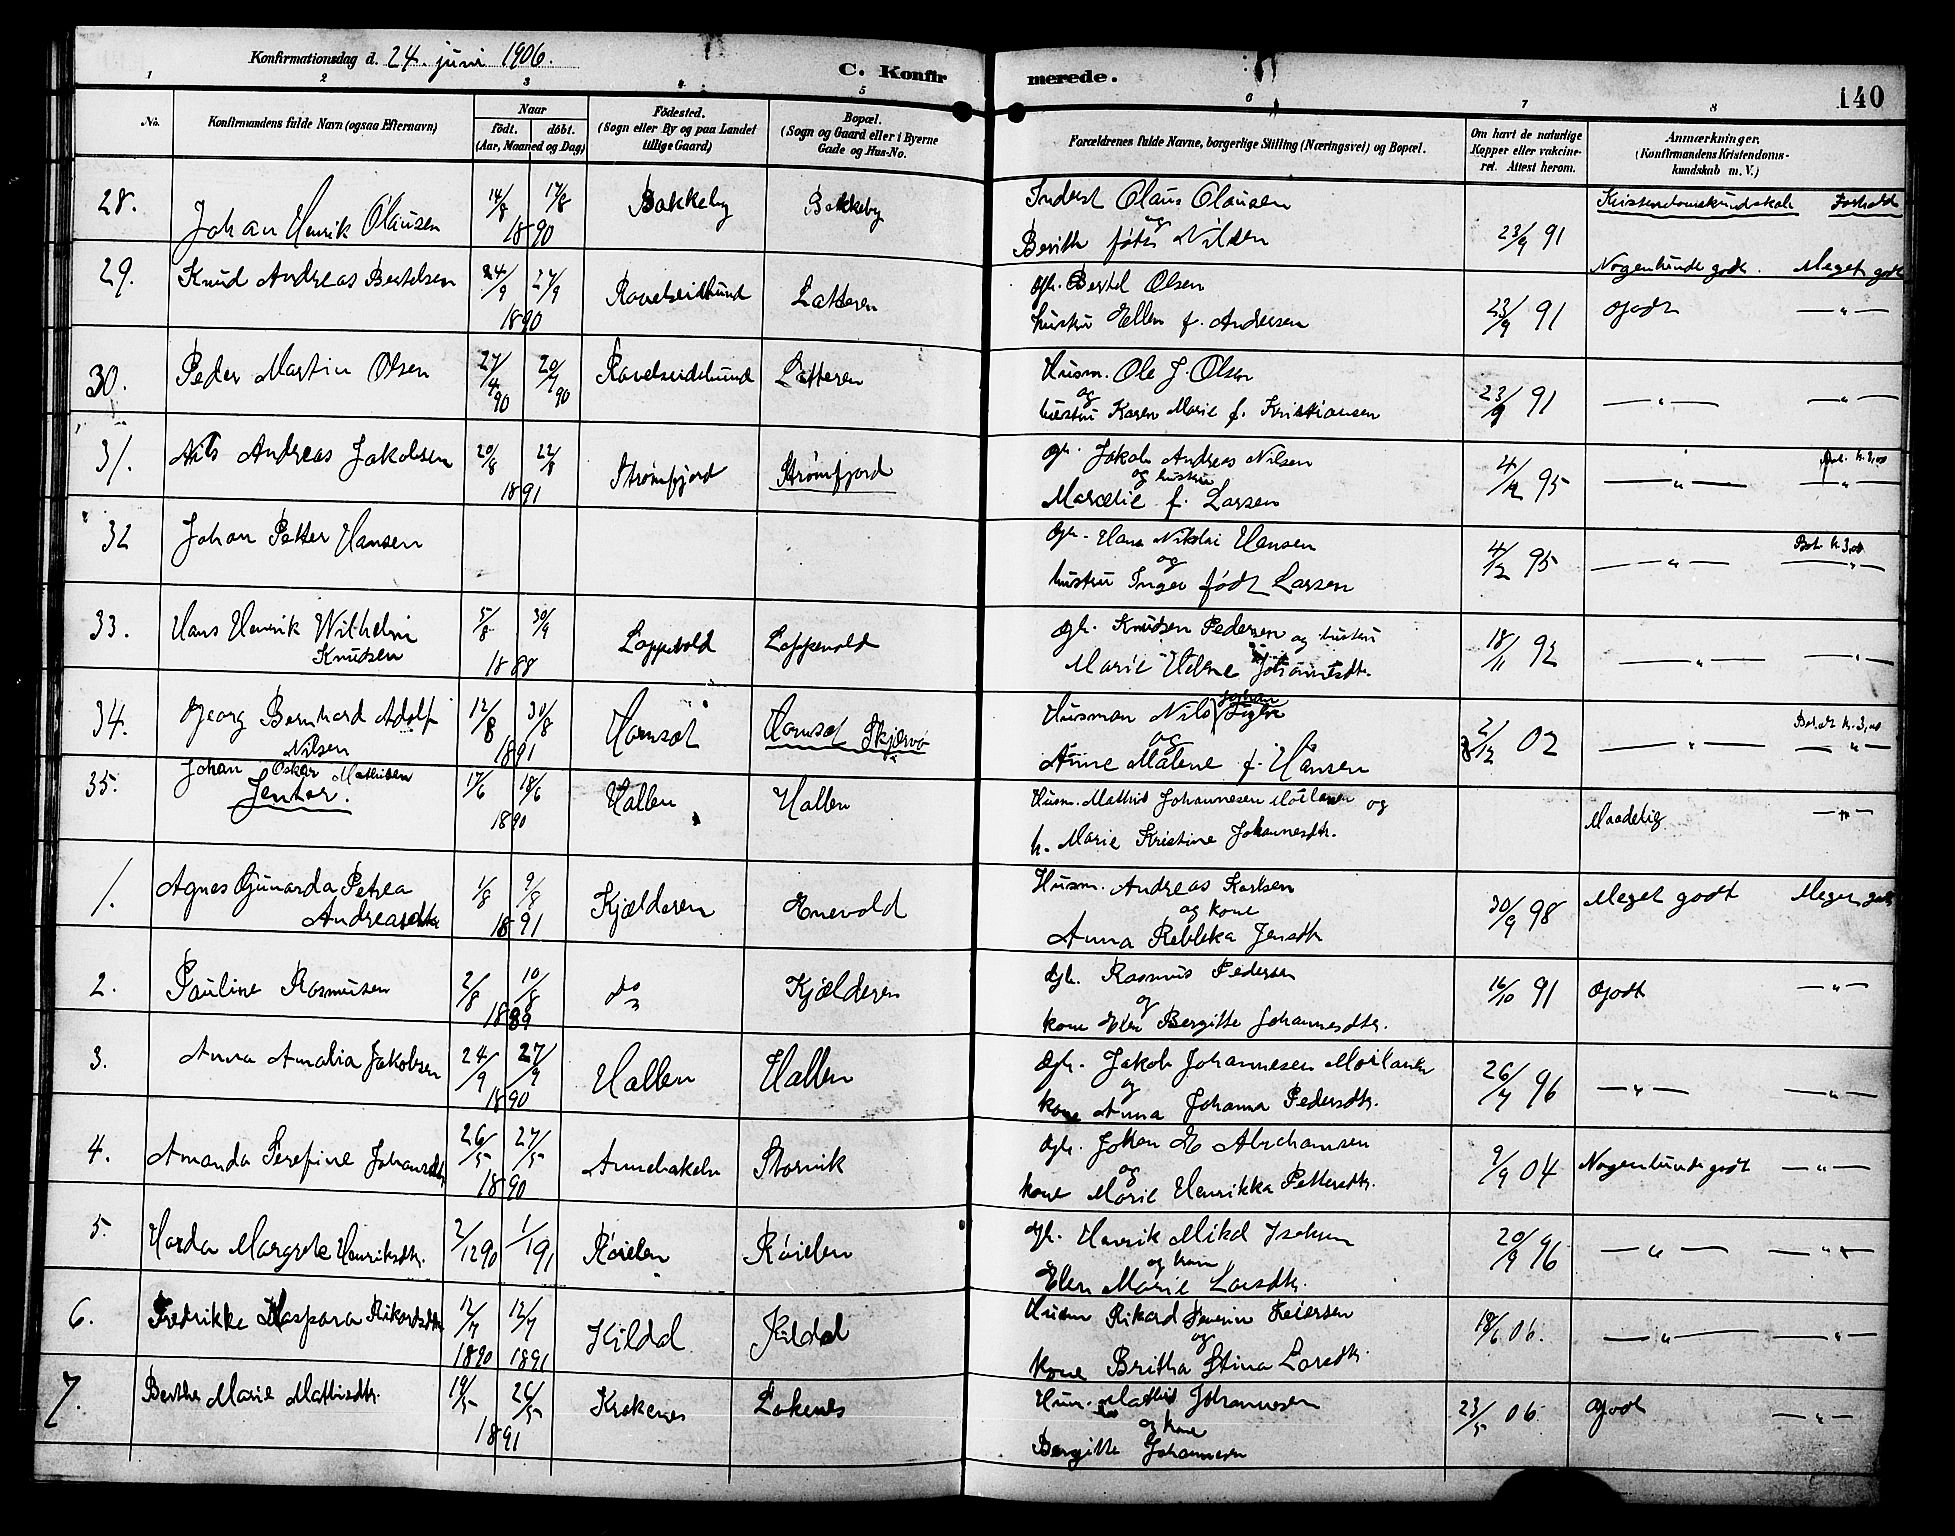 Konfirmationsdag d. 24. juni 1906.
C. Konfirmerede.
140
1 2 3 4 5 6 7 8
No.
Konfirmandens fulde Navn (ogsaa Efternavn)
Naar
født. døbt.
(Aar, Maaned og Dag)
Fødested.
(Sogn eller By og paa Landet
tillige Gaard)
Bopæl.
(Sogn og Gaard eller i Byerne
Gade og Hus-No.
Forældrenes fulde Navne, borgerlige Stilling (Næringsvei) og Bopæl.
Om havt de naturlige
Kopper eller vakcine-
ret. Attest herom.
Anmærkninger.
(Konfirmandens Kristendoms-
kundskab m. V.)
28. Johan Henrik Olausen 14/8 17/8 1890 Bakkeby Bakkeby
Inderst Olaus Olausen
og
Berith født Nilsen 23/9 91
Kristendomskundskab Forhold
Nogenlunde godt. Meget godt
29. Knud Andreas Bertelsen 24/9 27/9 1890 Ravelseidsund Latteren
gbr. Bertel Olsen
hustru Ellen f. Andersen 23/9 91 Godt —"—
30. Peder Martin Olsen 27/4 90 20/7 90 Ravelseidsund Latteren
Husm. Ole J. Olsen
og
hustru Karen Marie f. Kristiansen 23/9 91 —"— —"—
31. Nils Andreas Jakobsen 20/8 22/8 1891 Strømfjord Strømfjord
gbr. Jakob Andreas Nilsen
og hustru
Marselie f. Larsen 4/12 95 —"— Bet. k. 3,00 —"—
32 Johan Petter Hansen
Gbr. Hans Nikolai Hansen
og
hustru Inger født Larsen 4/2 95 —"— Bet. k. 3,00 —"—
33. Hans Henrik Wilhelm
Knudsen 5/8 30/9 1888 Loppevold Loppevold
gbr. Knudsen Pedersen og hustru
Marie Helene Johannesdtr. 18/11 92 —"— —"—
34. Georg Bernhard Adolf
Nilsen 12/8 30/8 1891 Hamsøt Hamsøt Skjærvø
Husman Nils Johan
og
Anne Malene f. Hansen 2/12 02 —"— Betalt k. 3,00 —"—
35. Johan Oskar Mathisen
Jentor. 17/6 18/6 1890 Hallen Hallen
Husm. Mathis Johannesen Moilanen og
h. Marie Kristine Johannesdtr.
Maadelig —"—
1. Agnes Gunarda Petrea
Andreasdtr 1/8 9/8 1891 Kjælderen Enevold
Husm. Andreas Karlsen
og kone
Anna Rebbeka Jensdtr 30/9 98 Meget godt Meget godt
2. Pauline Rasmusen 2/8 10/8 1889 do Kjælderen
Gbr. Rasmus Pedersen
og
kone Elen Bergitte Johannesdtr. 16/10 91 Godt —"—
3. Anna Amalia Jakobsen 24/9 27/9 1890 Hallen Hallen
Gbr. Jakob Johannesen Moilanen
og
kone Anna Johanna Pedersdtr. 26/7 96 —"— —"—
4. Amanda Serefine Johansdtr 26/5 27/5 1890 Storvik
Gbr. Johan E Abrahamsen
og
kone Marie Henrikka Pettersdtr. 9/9 04 Nogenlunde godt —"—
5. Harda Margrete Henriksdtr. 2/12 90 1/1 91 Røielen Røielen
gbr. Henrik Mikal Isaksen
og kone
Elen Marie Larsdtr. 20/9 96 —"— —"—
6. Fredrikke Kaspara Rikardsdtr 12/7 1890 12/7 1891 Kildal Kildal
Husm Rikard Severin Reiersen
og
kone Britha Stina Larsdtr. 18/6 06. —"— —"—
7. Berthe Marie Mathisdtr. 19/5 26/5 1891 Krakenes Lakenes
Husm. Mathis Johannesen
og kone
Bergitte Johannesen 23/5 06 Godt —"—